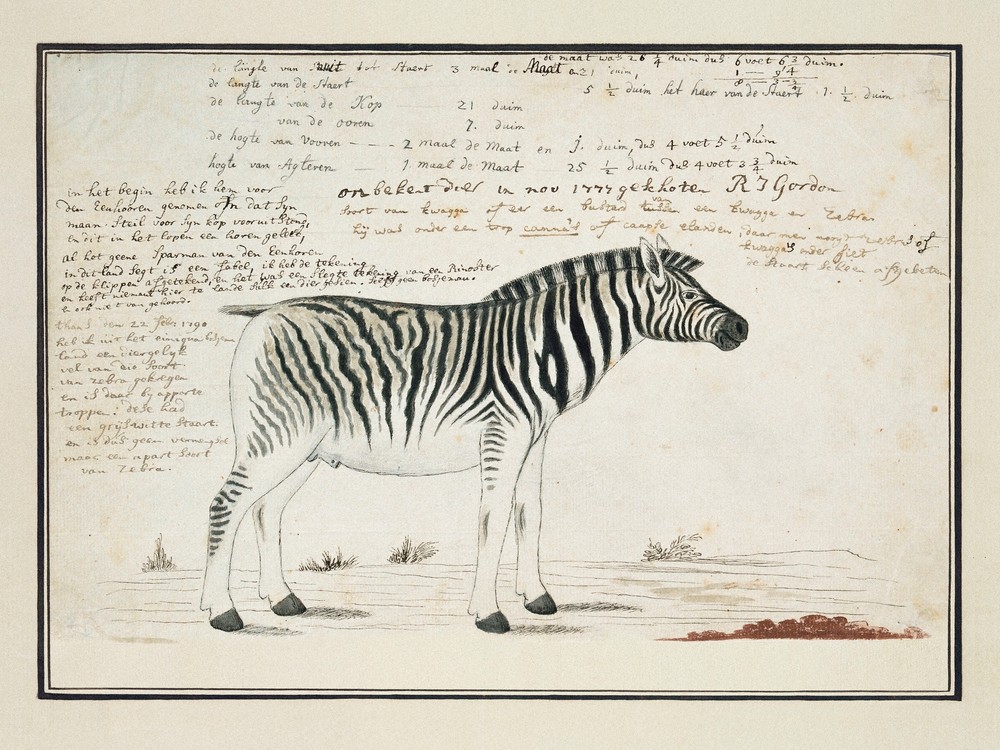 de maat was 26 1/4 duim dus 6 voet 6 3/4 duim.
de lengte van tot Staert 3 maal de Maat en 21 duim,
de langte van de Staert 5 1/2 duim het haer van de Staert 1. 1/2. duim
de langte van de Kop 21 duim
van de ooren 7. duim
de hogte van Vooren - - - 2 maal de Maat en j. duim, dus 4 voet 5 1/2 duim
hogte van Agteren 1 maal de Maat 25 1/2 duim dus 4 voet 3 3/4 duim
onbekent dier in nov 1777 geschoten R J Gordon
Soort van kwagga of eer een bustard van een kwagga en Zebra
hij was onder een trop canna's of caapse elanden,
kwaggas onder siet
de Staart scheen afgebeten
in het begin heb ik hem voor
den Eenhooren genomen om dat Syn
maan Steil voor Syn kop vooruit Stond,
en dit in het lopen een horen geleek,
al het geene Sparman van den Eenhoren
in dit land Segt is een fabel, ik heb de tekening
op de klippen afgetekend, en het was een Slegte tekening van een Rinoster
en heeft niemant hier te lande Sulk een dier gesien.
ook niet van gehoord.
thans den 22 feb: 1790
heb ik uit het einiqua
land een diergelyk
vel van die Soort
van zebra gekregen
en is daar by apparte
troppen: dese had
een grijswitte Staart.
en is dus geen vermengsel
maar een apart Soort
van Zebra.